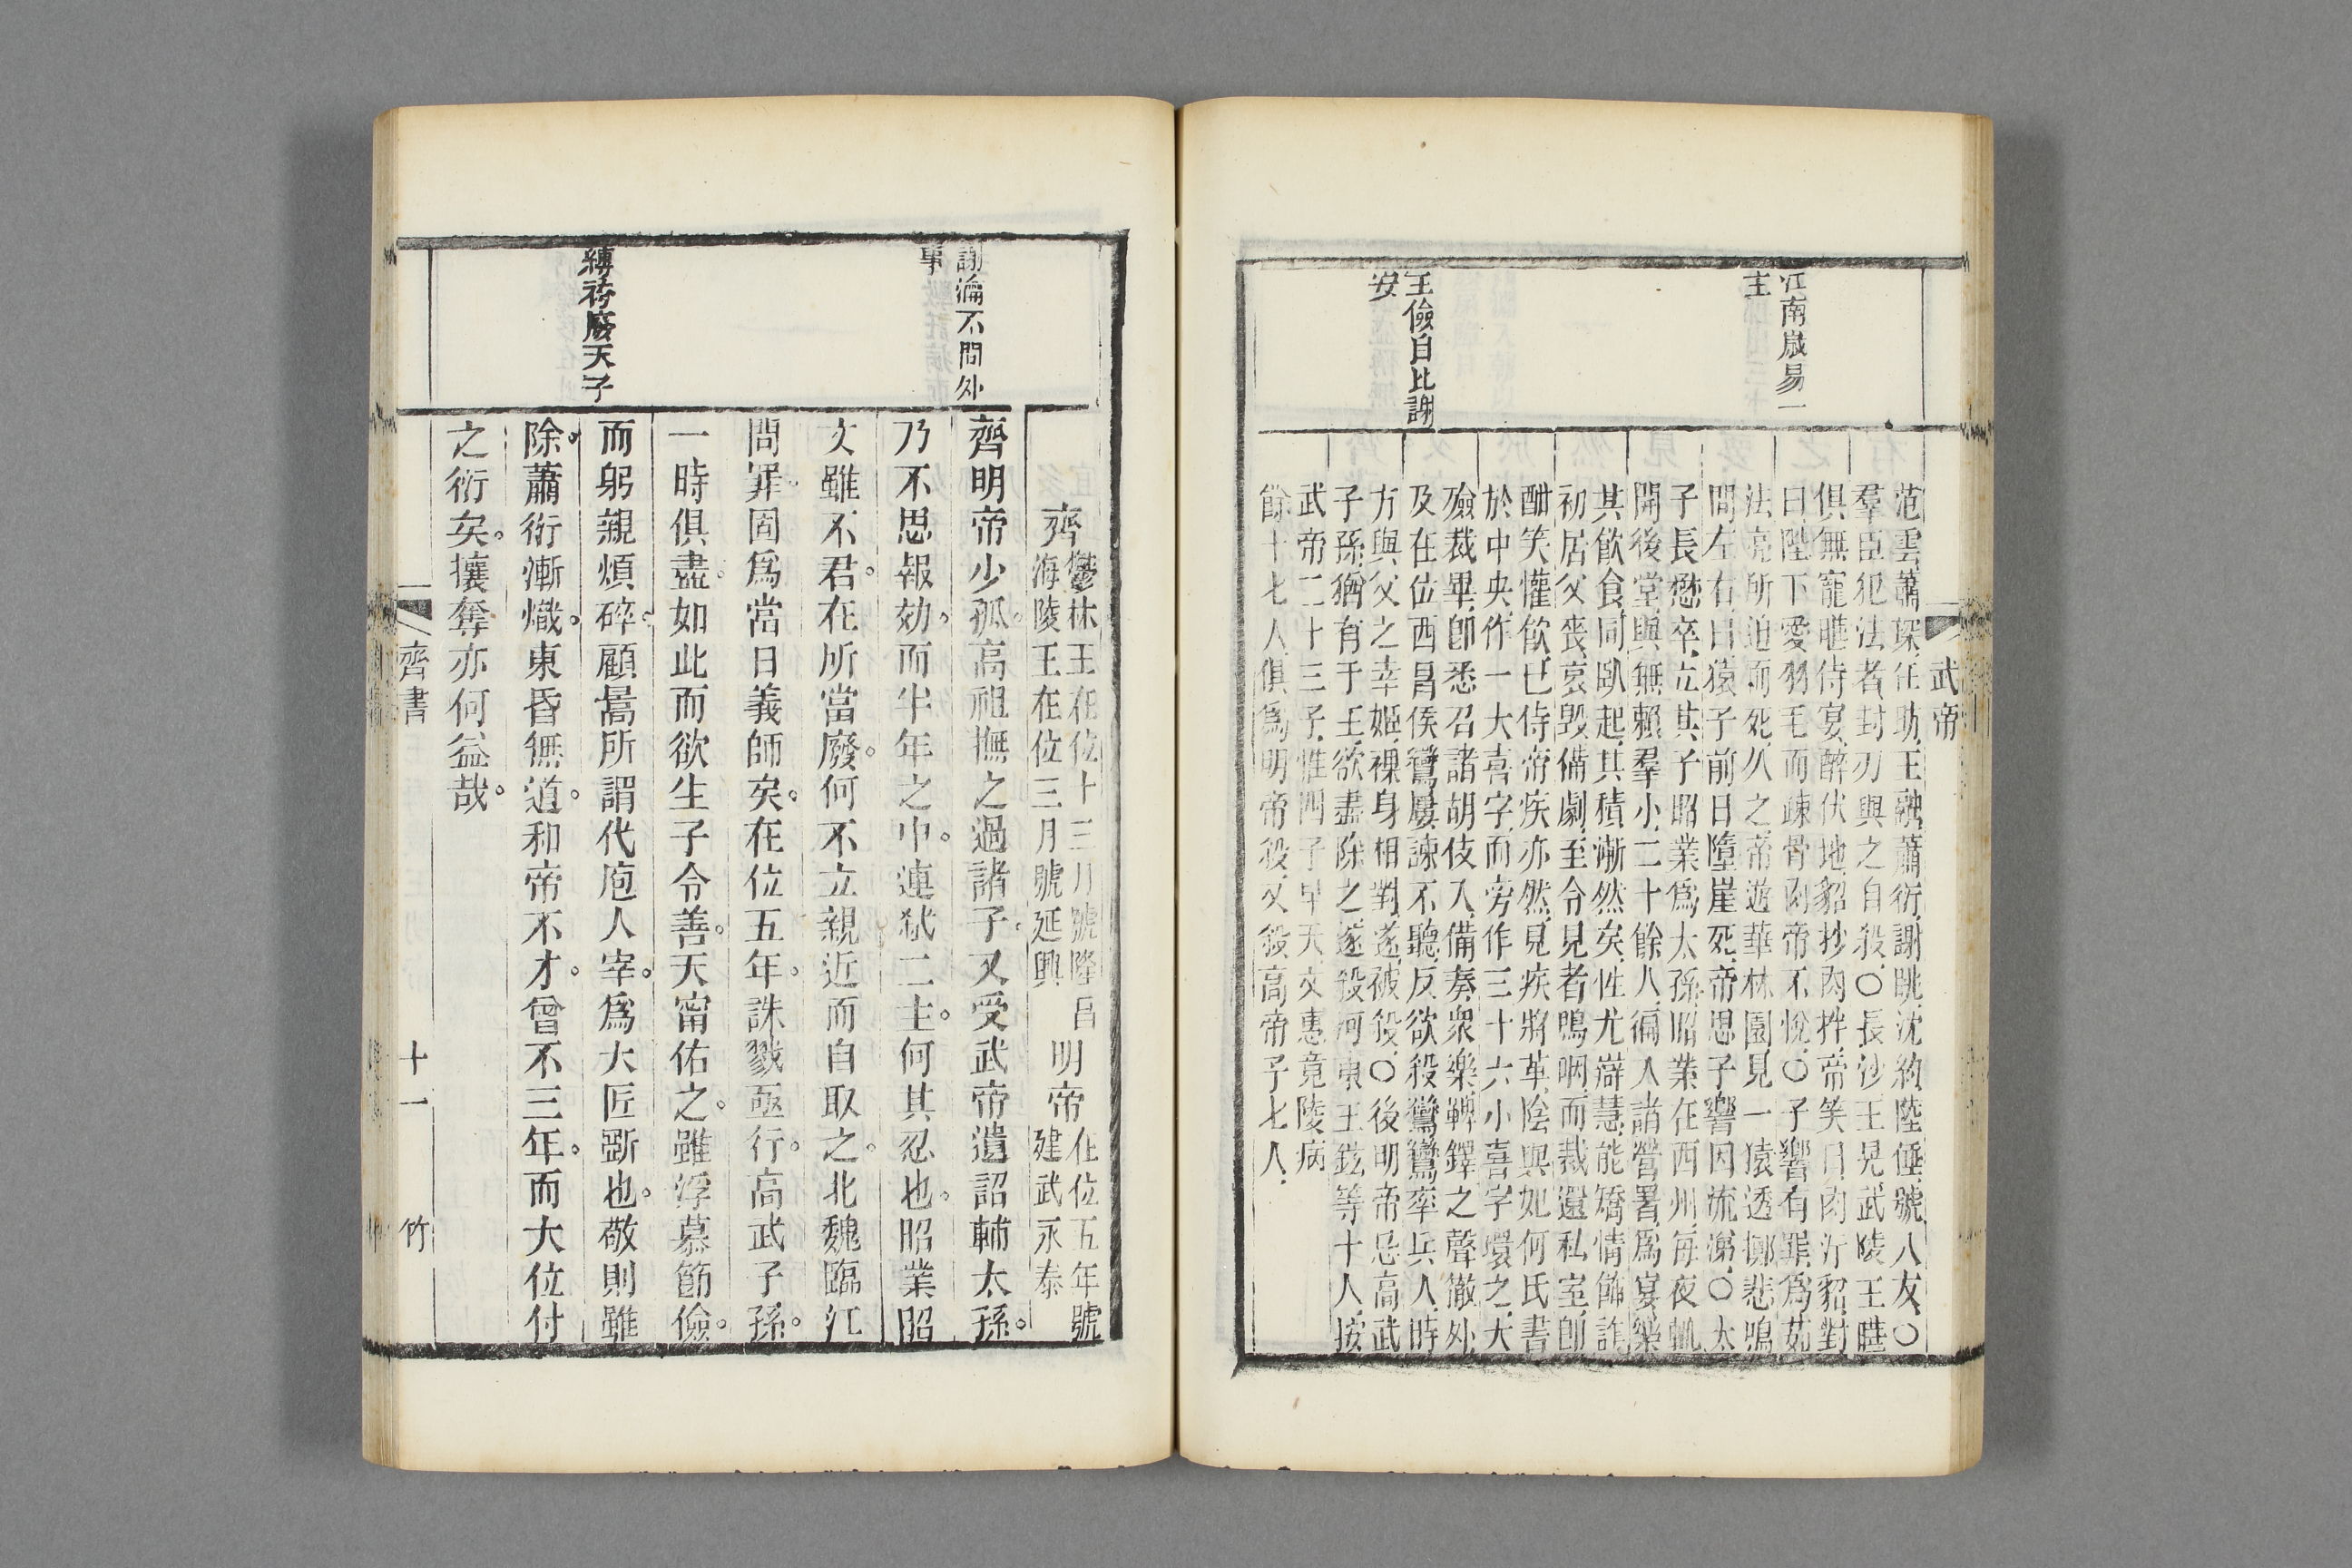 江南嵗易一
主
王儉自比謝
安
武帝
范雲蕭琛任昉王融蕭衍謝朓沈約陸倕號八友〇
羣臣犯法者封刃與之自殺〇長沙王晃武陵王曅
俱無寵曅侍宴醉伏地貂抄肉拌帝笑曰肉汙貂對
曰陛下愛羽毛而疎骨肉帝不悅〇子響有罪爲茹
法亮所迫而死久之帝遊華林園見一猿透擲悲鳴
問左右曰猿子前日墮崖死帝思子響因流涕〇太
子長懋卒立其子昭業爲太孫昭業在西州每夜輒
開後堂與無賴羣小二十餘人徧入諸營署爲宴樂
其飮食同臥起其積漸然矣性尤辯慧能矯情飾詐
初居父喪哀毀備劇至令見者嗚咽而裁還私室卽
酣笑懽飮已侍帝疾亦然見疾將革陰與妃何氏書
於中央作一大喜字而旁作三十六小喜字環之大
殮裁畢卽悉召諸胡伎入備奏衆樂鞞鐸之聲徹外
及在位西昌侯鸞屢諫不聽反欲殺鸞鸞率兵入時
方與父之幸姬裸身相對遂被殺〇後明帝忌高武
子孫猶有于王欲盡除之遂殺河東王鉉等十人按
武帝二十三子惟四子早夭文惠竟陵病
餘十七人俱爲明帝殺又殺高帝子七人
謝瀹不問外
事
縛袴廢天子
齊 鬱林王在位十三月號隆昌
海陵王在位三月號延興
明帝 在位五年號
建武永泰
齊明帝少孤。高祖撫之過諸子。又受武帝遺詔輔太孫。
乃不思報効。而半年之中。連弑二主。何其忍也。昭業昭
文雖不君。在所當廢。何不立親近而自取之。北魏臨江
問罪。固爲當日義師矣。在位五年。誅戮亟行。高武子孫。
一時俱盡。如此而欲生子令善。天甯佑之。雖浮慕節儉。
而躬親煩碎。顧暠所謂代庖人宰。爲大匠斲也。敬則雖
除。蕭衍漸熾。東昏無道。和帝不才。曾不三年。而大位付
之衍矣。攘奪亦何益哉。
齊書
十一
竹